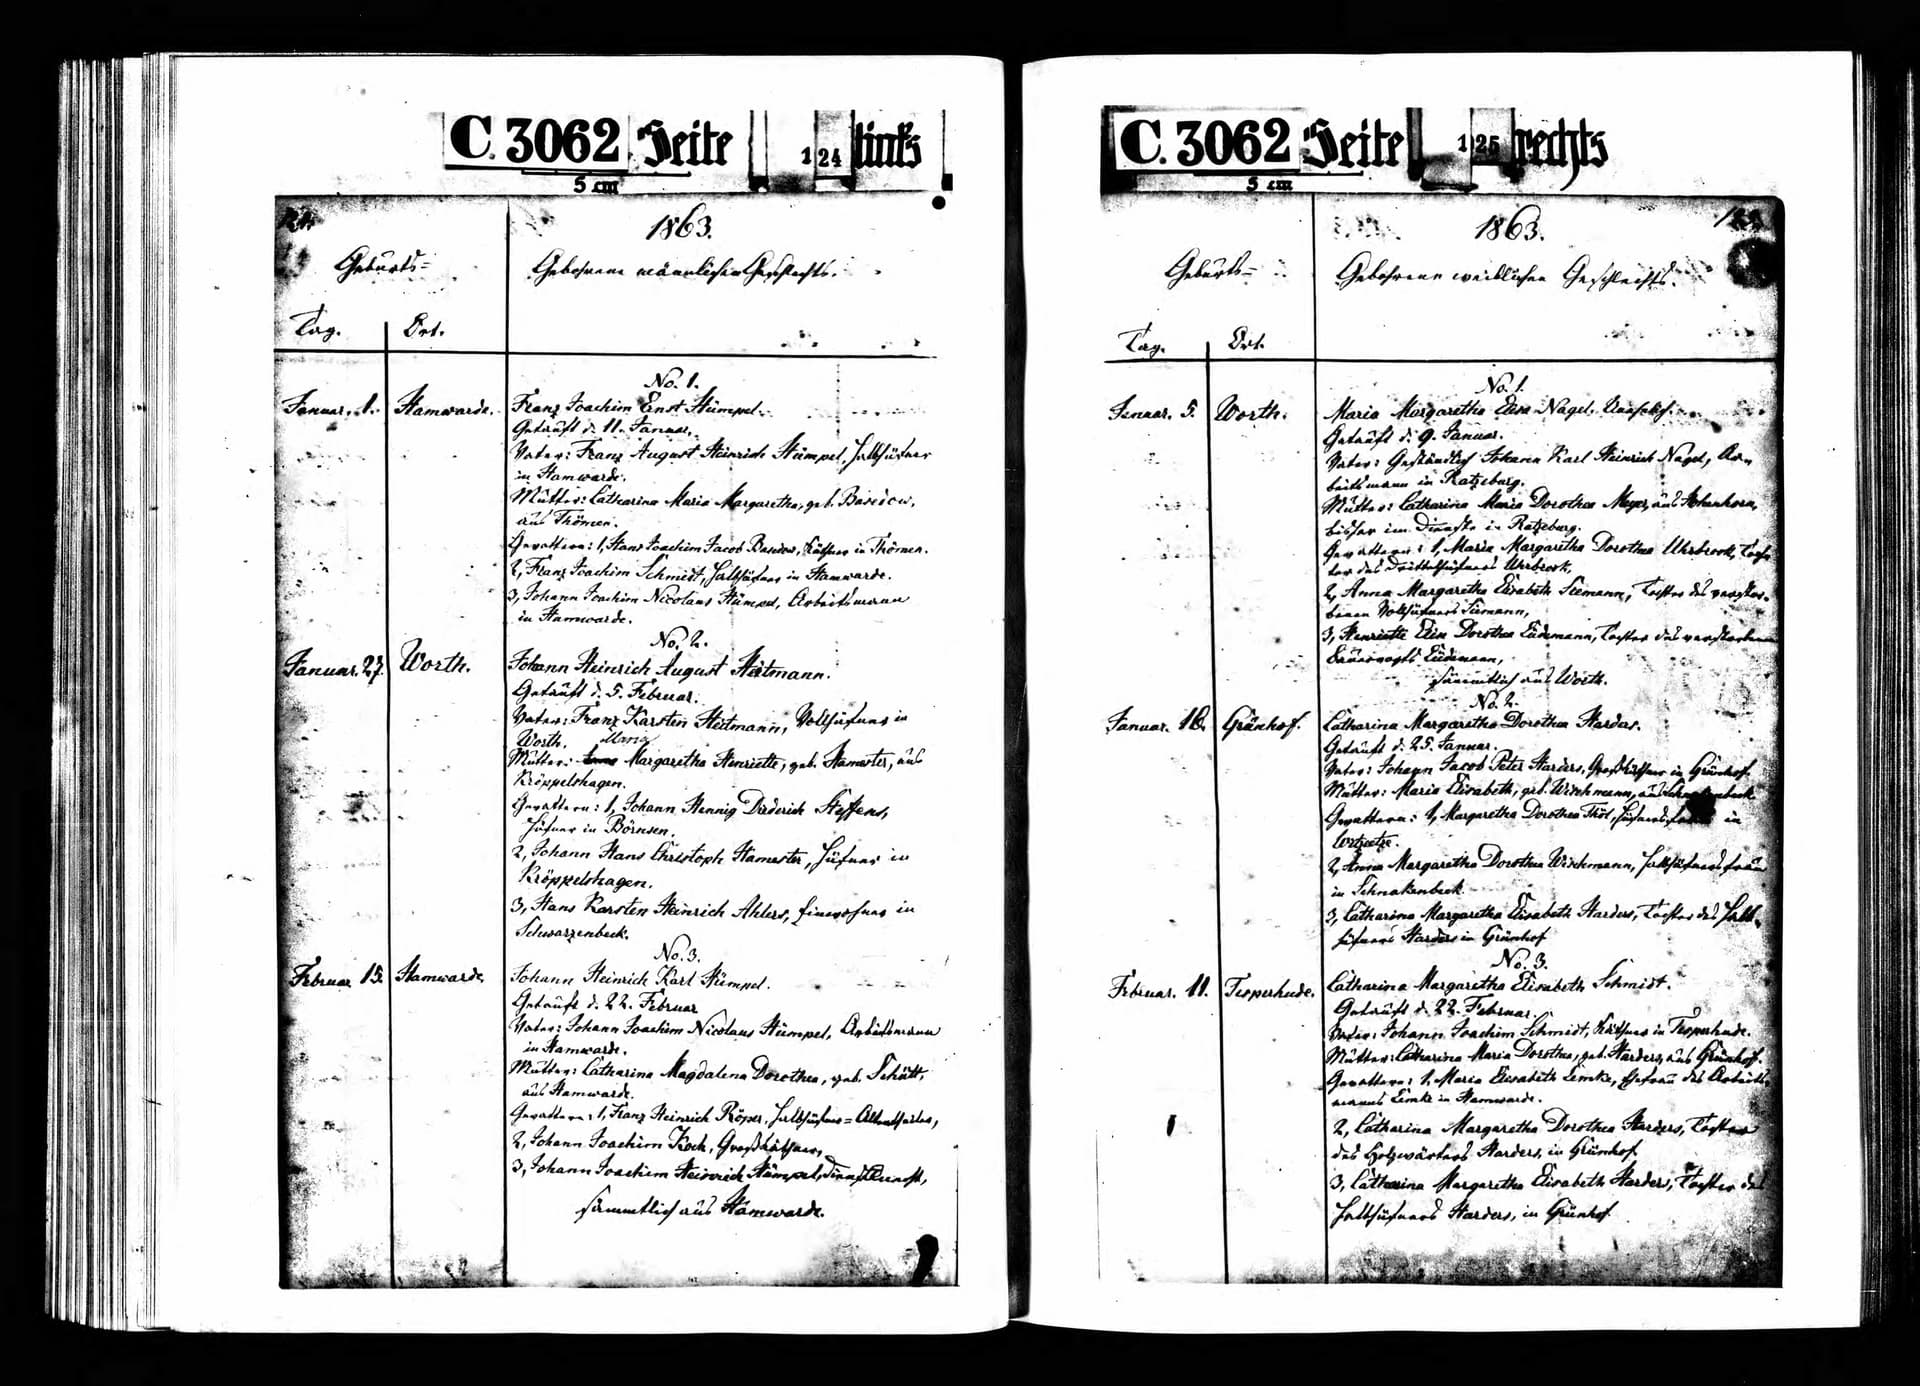 C. 3062 Seite 124 links
5 cm
124.
1863.
Geburts=
Gebohrene männlichen Geschlechts.
Tag.
Ort.
No. 1.
Januar. 1.
Hamwarde.
Franz Joachim Ernst Stümpel.
Getauft d. 11. Januar.
Vater: Franz August Heinrich Stümpel, Halbhüfner
in Hamwarde.
Mutter: Catharina Maria Margaretha, geb. Basedow,
aus Thömen.
Gevattern: 1, Hans Joachim Jacob Basedow, Käthner in Thömen.
2, Franz Joachim Schmidt, Halbhüfner in Hamwarde.
3, Johann Joachim Nicolaus Stümpel, Arbeitsmann
in Hamwarde.
No. 2.
Januar. 27.
Worth.
Johann Heinrich August Heitmann.
Getauft d. 5. Februar.
Vater: Franz Karsten Heitmann, Vollhüfner in
Worth.
Maria
Mutter: Margaretha Henriette, geb. Hamester, aus
Kröppelshagen.
Gevattern: 1, Johann Hennig Diederich Steffens,
Hüfner in Börnsen.
2, Johann Hans Christoph Hamester, Hüfner in
Kröppelshagen.
3, Hans Karsten Heinrich Ahlers, Einwohner in
Schwarzenbeck.
No. 3.
Februar 15.
Hamwarde.
Johann Heinrich Karl Stümpel.
Getauft d. 22. Februar
Vater: Johann Joachim Nicolaus Stümpel, Arbeitsmann
in Hamwarde.
Mutter: Catharina Magdalena Dorothea, geb. Schütt,
aus Hamwarde.
Gevattern: 1, Franz Heinrich Röper, Halbhüfner=Altentheiler,
2, Johann Joachim Koch, Großkäthner,
3, Johann Joachim Heinrich Stümpel, Dienstknecht,
sämmtlich aus Hamwarde.
C. 3062 Seite 125 rechts
5 cm
125.
1863.
Geburts=
Gebohrene weiblichen Geschlechts.
Tag.
Ort.
No. 1.
Januar. 5.
Worth.
Maria Margaretha Elise Nagel. Unehelich.
Getauft d. 9. Januar.
Vater: Geständlich Johann Karl Heinrich Nagel, Ar-
beitsmann in Ratzeburg.
Mutter: Catharina Maria Dorothea Meyer, aus Hohenhorn,
bisher im Dienste in Ratzeburg.
Gevattern: 1, Maria Margaretha Dorothea Uhrbrock, Toch-
ter des Drittelhüfners Uhrbrock,
2, Anna Margaretha Elisabeth Siemann, Tochter des verstor-
benen Vollhüfners Siemann,
3, Henriette Elise Dorothea Lüdemann, Tochter des verstorbenen
Bauervogts Lüdemann,
sämmtlich aus Worth.
No. 2.
Januar. 16.
Grünhof.
Catharina Margaretha Dorothea Harders.
Getauft d. 25. Januar.
Vater: Johann Jacob Peter Harders, Großkäthner in Grünhof.
Mutter: Maria Elisabeth, geb. Wischmann, aus Schnakenbeck
Gevattern: 1, Margaretha Dorothea Thöl, Hüfnersfrau in
Wotzetze.
2, Anna Margaretha Dorothea Wischmann, Halbhüfnersfrau
in Schnakenbeck
3, Catharina Margaretha Elisabeth Harders, Tochter des Halb-
hüfners Harders in Grünhof
No. 3.
Februar. 11.
Tesperhude.
Catharina Margaretha Elisabeth Schmidt.
Getauft d. 22. Februar.
Vater: Johann Joachim Schmidt, Käthner in Tesperhude.
Mutter: Catharina Maria Dorothea, geb. Harders, aus Grünhof.
Gevattern: 1, Maria Elisabeth Limke, Ehefrau des Arbeits-
manns Limke in Hamwarde.
2, Catharina Margaretha Dorothea Harders, Tochter
des Holzwärters Harders, in Grünhof
3, Catharina Margaretha Elisabeth Harders, Tochter des
Halbhüfners Harders, in Grünhof.